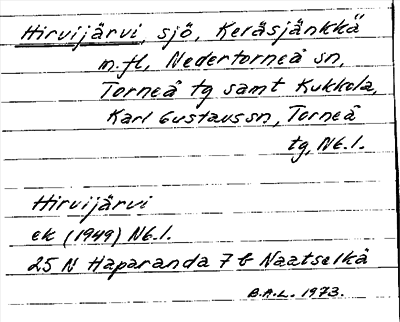 Hirvijärvi, sjö, Keräsjänkkä
m.fl, Nedertorneå sn,
Torneå tg samt Kukkola,
Karl Gustavs sn, Torneå
tg, Nb.l.
Hirvijärvi
ek (1949) Nb.l.
25 N Haparanda 7 b Naatselkä
B.A.L. 1973.